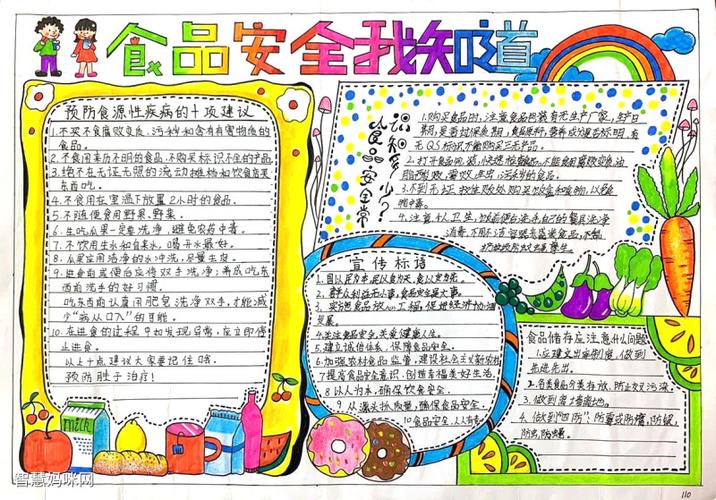 食品安全我知道
预防食源性疾病的十项建议
1.不买不食腐败变质、污秽和含有有害物质的
食品。
2.不食用来历不明的食品,不购买标识不全的产品
3.绝不在无证无照的流动摊档和饮食店买
东西吃。
4.不食用在室温下放置2小时的食品
5.不随便食用野果、野菜。
6.生吃瓜果一定要洗净,避免农药中毒。
7.不饮用生水和自来水,喝开水最好。
8.瓜果应用洁净的水冲洗,尽量去皮。
9.进食前或便后应将双手洗净;养成吃东
西前洗手的好习惯。
吃东西前认真用肥皂洗净双手,才能减
少“病从口入”的可能。
10.在进食的过程中如发现异常,应立即停
止进食。
以上十点建议大家要记住哦。
预防胜于治疗!
食品安全常
识知多少?
1.购买食品时,注意食品包装有无生产厂家,生产日
期,是否过保质期,食品原料,营养成分是否标明,有
无QS标识,不能购买三无产品。
4.注意个人卫生,饭前便后洗手,自己的餐具洗净
消毒,不用不洁容器盛装食品,不乱
宣传标语
1.国以民为本,民以食为天,食以安为先。
2.群众利益无小事,食品安全是大事。
3.实施食品放心工程,促进经济协调
发展。
4.关注食品安全,关爱健康人生。
5.建立诚信体系,保障食品安全。
6.加强农村食品监管,建设社会主义新农村
7提高食品安全意识,创造幸福美好生活。
8以人为本,确保饮食安全。
9.从源头抓质量,确保食品安全。
10食品安全,人人有责
食品储存应注意什么问题
1.应建立出入库制度,做到
先进先出。
2.各类食品分类存放,防止交叉污染。
4.做到“四防”:防霉或防腐,防鼠,
防虫,防蝇。
milk
智慧妈咪网
110